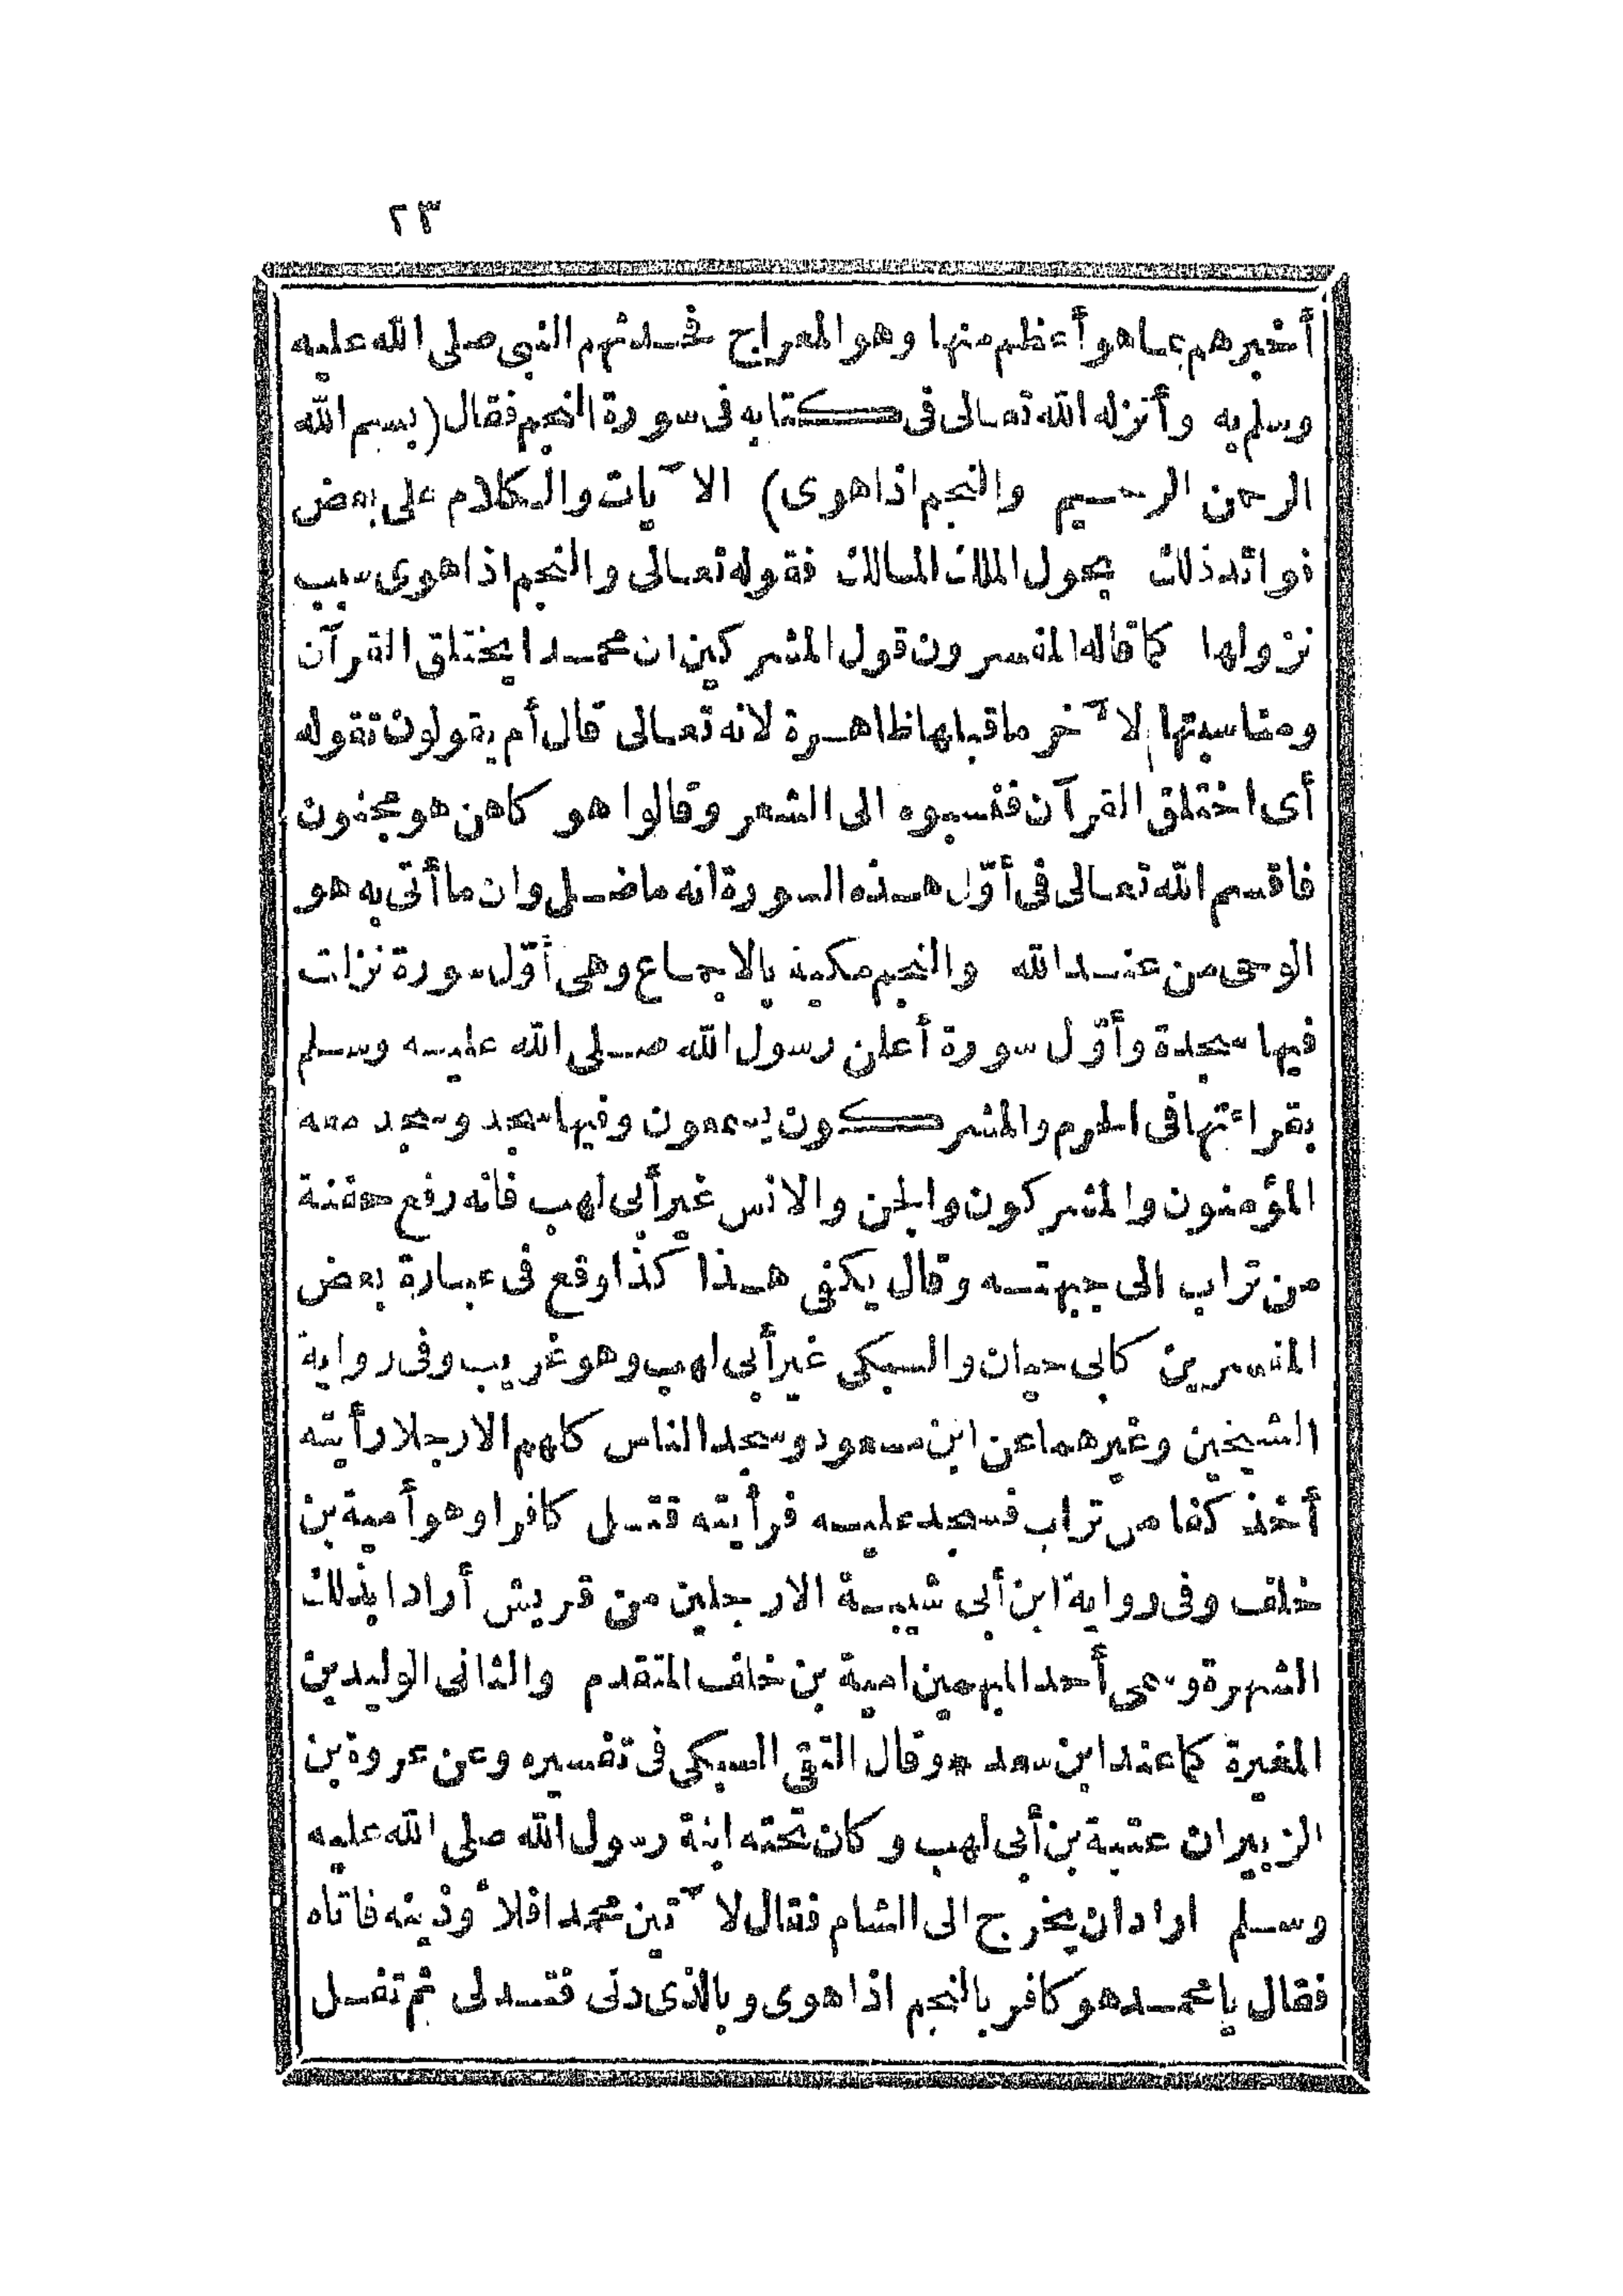 ٢٣
أخبرهم بما هو أعظم منها وهو المعراج فحدثهم النبى صلى الله عليه
وسلم به وأنزله الله تعالى فى كتابه فى سورة النجم فقال (بسم الله
الرحمن الرحيم والنجم اذا هوى) الآيات والكلام على بعض
فوائد ذلك بحول الملك المالك فقوله تعالى والنجم اذا هوى سبب
نزولها كما قاله المفسرون قول المشركين ان محمدا يختلق القرآن
ومناسبتها لآخر ما قبلها ظاهرة لانه تعالى قال أم يقولون تقوله
أى اختلق القرآن فنسبوه الى الشعر وقالوا هو كاهن هو مجنون
فاقسم الله تعالى فى أوّل هذه السورة انه ماضل وان ما أتى به هو
الوحى من عند الله والنجم مكية بالاجماع وهى أوّل سورة نزلت
فيها سجدة وأوّل سورة أعلن رسول الله صلى الله عليه وسلم
بقراءتها فى الحرم والمشركون يسمعون وفيها سجد وسجد معه
المؤمنون والمشركون والجن والانس غير أبى لهب فانه رفع حفنة
من تراب الى جبهته وقال يكفى هذا كذا وقع فى عبارة بعض
المفسرين كابى حيان والسبكى غير أبى لهب وهو غريب وفى رواية
الشيخين وغيرهما عن ابن مسعود وسجد الناس كلهم الا رجلا رأيته
أخذ كفا من تراب فسجد عليه فرأيته قتل كافرا وهو أمية بن
خلف وفى رواية ابن أبى شيبة الا رجلين من قريش أرادا بذلك
الشهرة وسمى أحد المبهمين امية بن خلف المتقدم والثانى الوليد بن
المغيرة كما عند ابن سعد * وقال التقى السبكى فى تفسيره وعن عروة بن
الزبير ان عتبة بن أبى لهب وكان تحته ابنة رسول الله صلى الله عليه
وسلم اراد ان يخرج الى الشام فقال لآتين محمدا فلأوذينه فاتاه
فقال يا محمد هو كافر بالنجم اذا هوى وبالذى دنى فتدلى ثم تفل